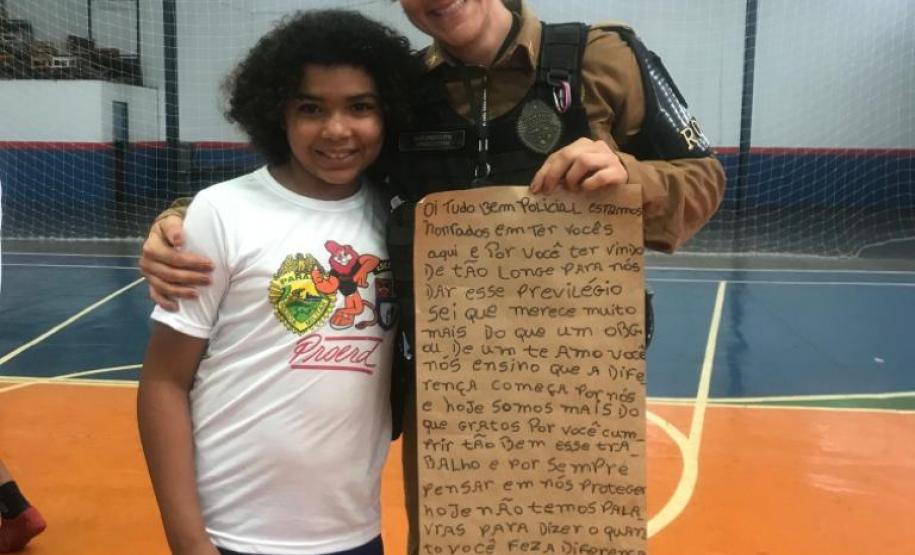 PARANÁ
Proerd
Oi Tudo Bem Policial estamos
Honrados em Ter vocês
aqui e Por você ter vindo
De tão longe para nós
dar esse Previlégio
sei que merece muito
mais do que um OBG
ou De um te Amo você
nós ensino que a Dife
rença começa Por nós
e hoje somos mais do
que gratos Por você cum_
Prir tão Bem esse tra_
Balho e Por sempre
Pensar em nós Proteger
hoje não temos Pala_
vras Para Dizer o quan_
to você fez a Diferença